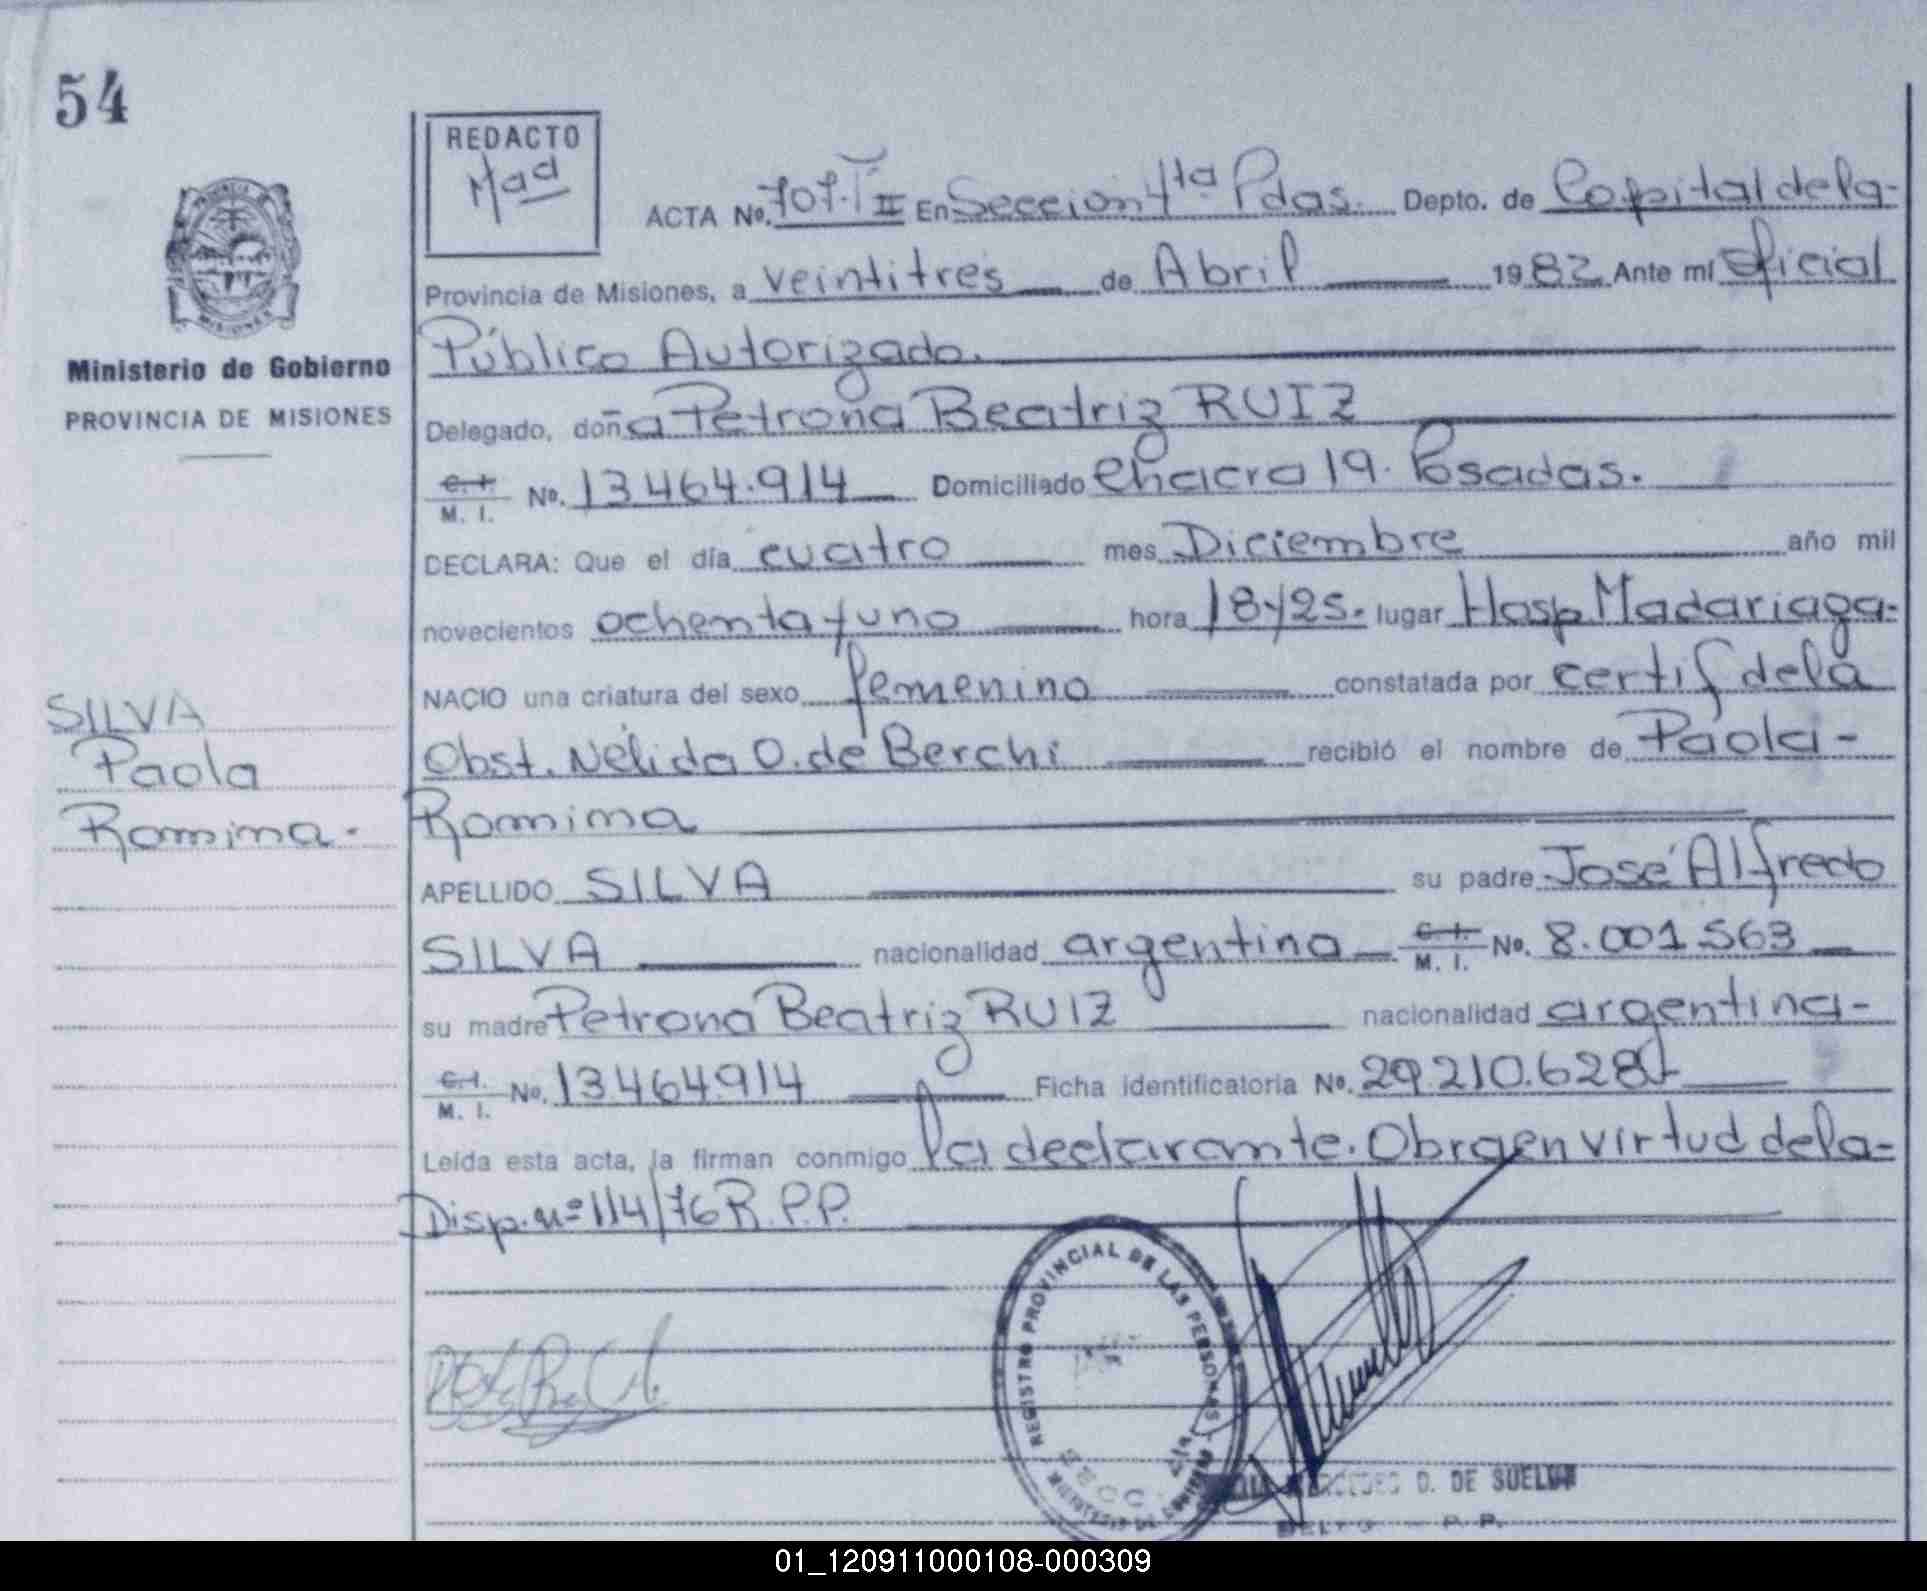 54
REDACTO
Mad
ACTA No. 707. T II En Sección 4ta Pdas. Depto. de Capital de la-
Provincia de Misiones, a veintitres de Abril 1982 Ante mi Oficial
Público Autorizado.
Ministerio de Gobierno
PROVINCIA DE MISIONES
Delegado, doña Petrona Beatriz RUIZ
C. I. M. I. No. 13.464.914 Domiciliado Chacra 19. Posadas.
DECLARA: Que el día cuatro mes Diciembre año mil
novecientos ochenta y uno hora 18y25. lugar Hosp. Madariaga-
NACIO una criatura del sexo femenino constatada por certif de la
Obst. Nélida O. de Berchi recibió el nombre de Paola-
Romina
SILVA
Paola
Romina.
APELLIDO SILVA su padre José Alfredo
SILVA nacionalidad argentina C. I. M. I. No. 8.001.563
su madre Petrona Beatriz RUIZ nacionalidad argentina-
C. I. M. I. No. 13.464.914 Ficha identificatoria No. 29.210.628
Leída esta acta, la firman conmigo la declarante. Obra en virtud de la-
Disp. nº 114/76 R.P.P.
REGISTRO PROVINCIAL DE LAS PERSONAS
D. DE SUELDO
01_120911000108-000309